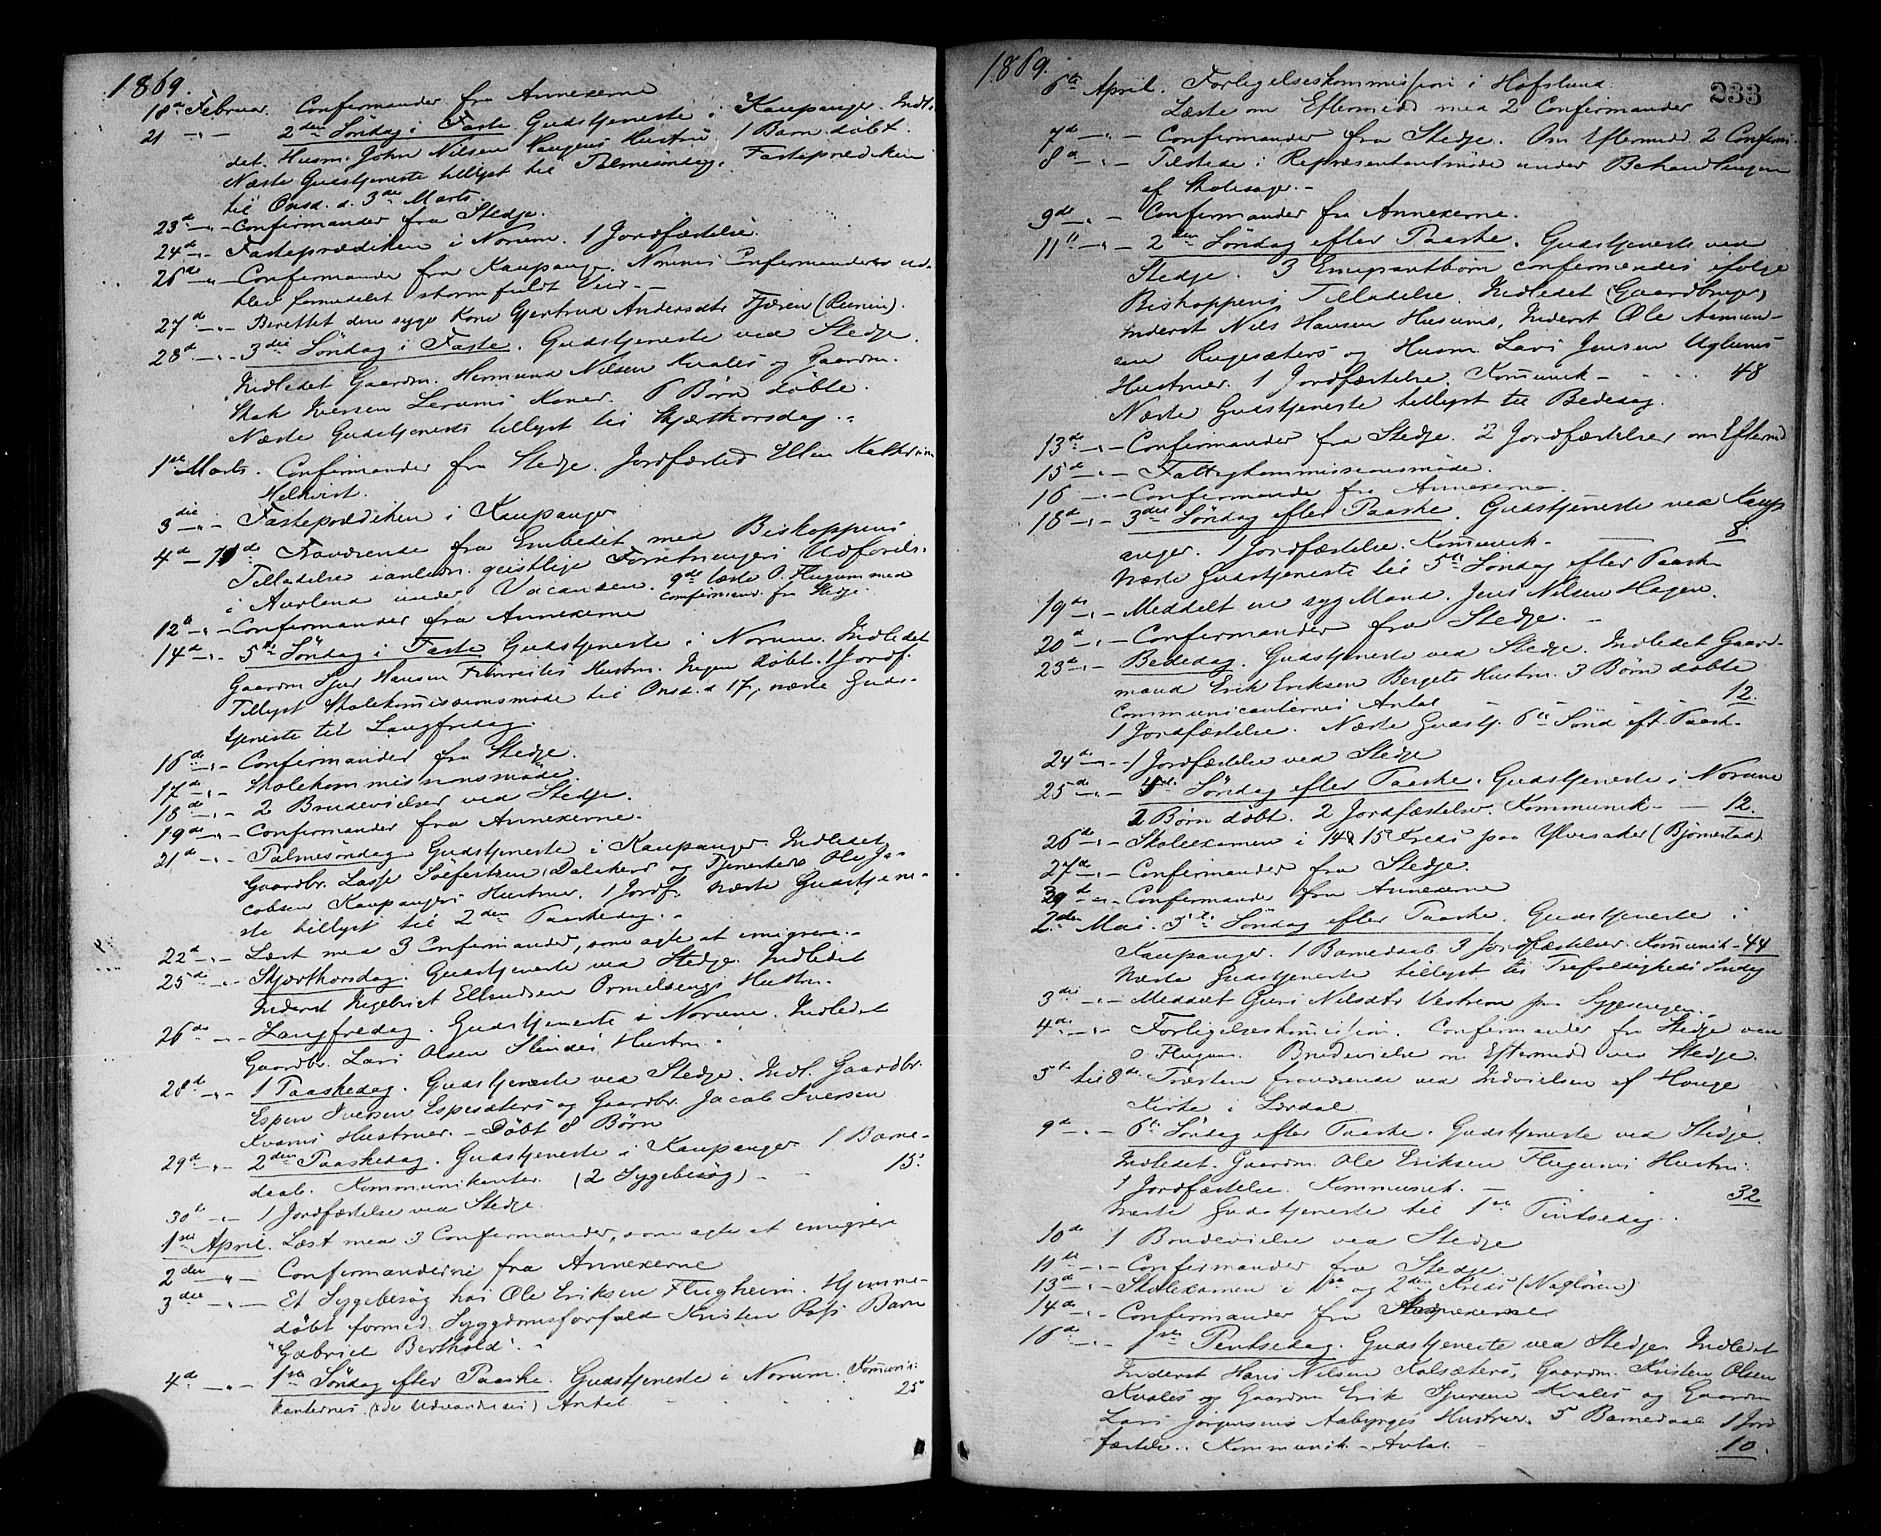 1869.
18de Februar. Confirmander fra Annexerne
21 -"- 2den Søndag i Faste Gudstjeneste i Kaupanger. Indle-
det Husm. John Nilsen Haugens Hustru. 1 Barn døbt.
Næste Gudstjeneste tillyst til Palmesøndag. Fasteprædiken
til Onsd. d. 3die Marts.
23de -"- Confirmander fra Stedje.
24de -"- Fasteprædiken i Norum. 1 Jordfæstelse.
26de -"- Confirmander fra Kaupanger. Norums Confirmander ud-
blev formedelst stormfuldt Veir.-
27de -"- Berettet den syge Kone Gjertrud Andersdtr Fjæren
28de -"- 3die Søndag i Faste. Gudstjeneste ved Stedje.
Indledet Gaardm. Hermund Nilsen Kvales og Gaardm.
Iversen Lerums Koner. 6 Børn døbte.
Næste Gudstjeneste tillyst til Skjærthorsdag.
1ste Marts. Confirmander fra Stedje. Jordfæsted Ellen Kathrine
Helkvist.
3die -"- Fasteprædiken i Kaupanger
4de - 11de Fraværende fra Embedet med Biskoppens
Tilladelse i anledn. geistlige Forretningers Udførelse
i Aurland under Vacansen. 9de læste O. Flugum med
confirmand. fra Stedje.
12te -"- Confirmander fra Annexerne
14de -"- 5te Søndag i Faste Gudstjeneste i Norum. Indledet
Gaardm Sjur Hansen Fimreites Hustru. Ingen døbt. 1 Jordf.
Tillyst Skolekommissionsmøde til Onsd. d 17, næste Guds-
tjeneste til Langfredag.
16de -"- Confirmander fra Stedje.
17de -"- Skolekommissionsmøde.
18de -"- 2 Brudevielser ved Stedje.
19de -"- Confirmander fra Annexerne.
21de -"- Palmesøndag Gudstjeneste i Kaupanger. Indledet
Gaardbr. Lasse Dalakers og Tjenestedr Ole Ja-
cobsen Kaupangers Hustruer. 1 Jordf. Næste Gudstjene-
ste tillyst til 2den Paaskedag.
22de -"- Læst med 3 Confirmander, som agte at emigrere.
25de -"- Skjærthorsdag. Gudstjeneste ved Stedje. Indledet
Inderst Ingebrigt Ellendsen Ormelsengs Hustru.
26de -"- Langfredag. Gudstjeneste i Norum. Indledet
Gaardbr. Lars Olsen Slindes Hustru.
28de -"- 1 Paaskedag. Gudstjeneste ved Stedje. Indl. Gaardbr.
Espen Iversen Espesæters og Gaardbr. Jacob Iversen
Kvams Hustruer. - Døbt 8 Børn
29de -"- 2den Paaskedag. Gudstjeneste i Kaupanger 1 Barne-
daab. Kommunikanter. (2 Sygebesøg) - 15.
30te -"- 1 Jordfæstelse ved Stedje.
1ste April. Læst med 3 Confirmander, som agte at emigrere
2den -"- Confirmanderne fra Annexerne
3die -"- Et Sygebesøg hos Ole Eriksen Flugheim. Hjemme-
døbt formed. Sygdomsforfald Kristen Barn
"Gabriel Berthold".
4de -"- 1ste Søndag efter Paaske. Gudstjeneste i Norum. Komuni-
kanternes Antal 25
1869.
233
6te April. Forligelseskommission i Hofslund.
Læste om Eftermidd med 2 Confirmander
7de -"- Confirmander fra Stedje. Om Eftermid. 2 Confirm.
8de -"- Tilstede i Repræsentantmøde under Behandlingen
af Skolesager.-
9de -"- Confirmander fra Annexerne.
11te -"- 2den Søndag efter Paaske. Gudstjeneste ved
Stedje. 3 Emigrantbørn confirmeredes ifølge
Biskoppens Tilladelse. Indledet (Gaardbruger)
Inderst Nils Hansen Husums, Inderst Ole Aamun-
sen Rugesæters og Husm. Lars Jensen Uglums
Hustruer. 1 Jordfæstelse. Komunik - 48
Næste Gudstjeneste tillyst til Bededag.
13de -"- Confirmander fra Stedje. 2 Jordfæstelser om Efterm.
15de -"- Fattigkommissionsmøde.
16 -"- Confirmander fra Annexerne.
18de -"- 3die Søndag efter Paaske. Gudstjeneste ved Kaup-
anger. 1 Jordfæstelse. Komunik. 8
Næste Gudstjeneste til 5te Søndag efter Paaske
19de -"- Meddelt en syg Mand. Jens Nilsen Hagen.
20de -"- Confirmander fra Stedje.
23de -"- Bededag. Gudstjeneste ved Stedje. Indledet Gaard-
mand Erik Eriksen Bergets Hustru. 3 Børn døbte
Communicanternes Antal 12.
1 Jordfæstelse. Næste Gudstj. 6te Sønd eft Paaske
24de -"- 1 Jordfæstelse ved Stedje
25de -"- 4de Søndag efter Paaske. Gudstjeneste i Norum
2 Børn døbt. 2 Jordfæstelser. Kommunik - 12.
26de -"- Skoleexamen i 14 & 15 Kreds paa Ylvesaker (Bjørnestad)
27de -"- Confirmander fra Stedje.
29de -"- Confirmander fra Annexerne
2den Mai. 5te Søndag efter Paaske. Gudstjeneste i
Kaupanger. 1 Barnedaab 3 Jordfæstelser. Komunik - 44
Næste Gudstjeneste tillyst til Trefoldigheds Søndag
3die -"- Meddelt Guri Nilsdtr Vestrem paa Sygesengen.
4de -"- Forligelseskomission. Confirmander fra Stedje ved
O. Flugum. Brudevielse om Eftermidd ved Stedje.
5te til 8de Præsten fraværende ved Indvielsen af Hauge
Kirke i Lærdal
9de -"- 6te Søndag efter Paaske. Gudstjeneste ved Stedje.
Indledet Gaardm. Ole Eriksen Flugums Hustru.
1 Jordfæstelse. Kommunik. - 32
Næste Gudstjeneste til 1ste Pintsedag.
10de 1 Brudevielse ved Stedje
11te -"- Confirmander fra Stedje.
13de -"- Skoleexamen i 1ste og 2den Kreds (Nagløren)
14de -"- Confirmander fra Annexerne
16de -"- 1ste Pintsedag. Gudstjeneste ved Stedje Indledet
Inderst Hans Nilsen Kalsæters, Gaardm. Kristen Olsen
Kvales og Gaardm Erik Sjursen Kvales og Gaardm
Lars Jørgensens Aabyrges Hustruer. 5 Barnedaab 1 Jord-
fæstelse. Kommunik - Antal 10.